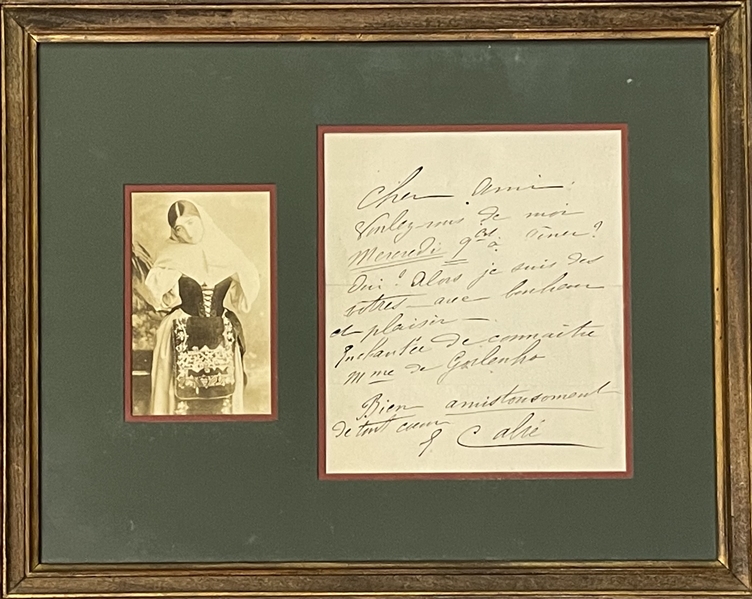 Cher Ami
Voulez-vous de moi
Mercredi 9 à diner?
Oui? Alors je suis des
vôtres - avec bonheur
et plaisir -
Enchantée de connaître
Mme de
Bien amistousement
de tout cœur
E. Calvé